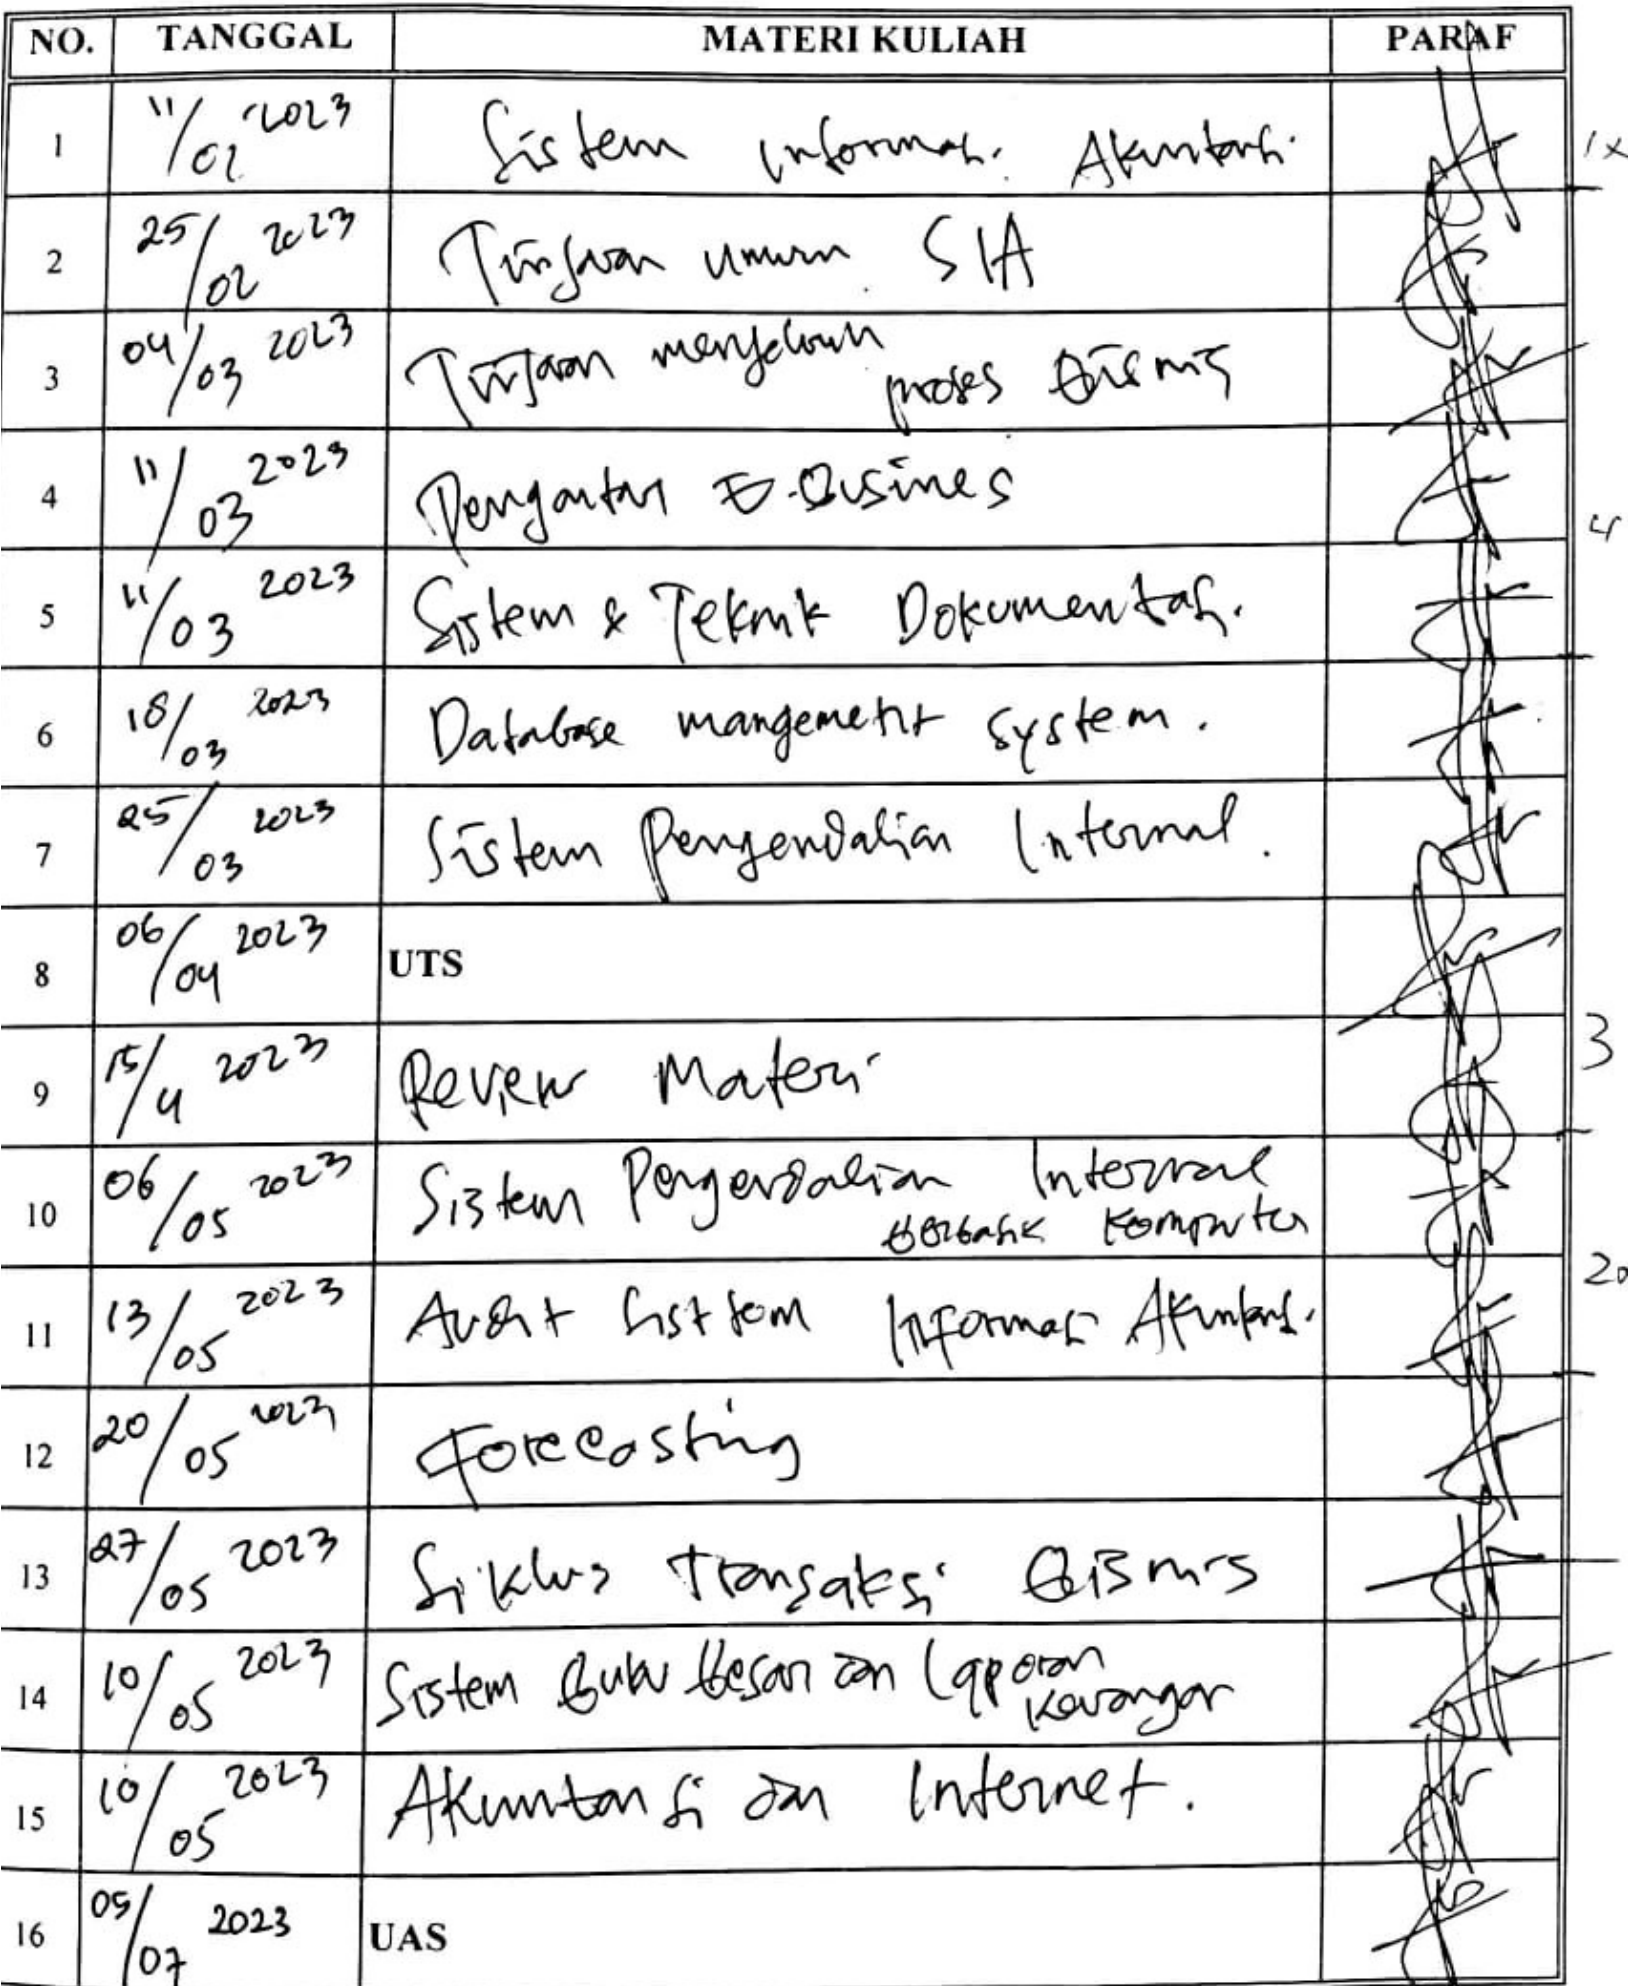 NO. TANGGAL MATERI KULIAH PARAF
1 11/02 2023 Sistem Informasi Akuntansi 1x
2 25/02 2023 Tinjauan umum SIA
3 04/03 2023 Tinjauan menyeluruh proses Bisnis
4 11/03 2023 Pengantar E-Busines 4
5 11/03 2023 Sistem & Teknik Dokumentasi.
6 18/03 2023 Database mangement system.
7 25/03 2023 Sistem Pengendalian Internal.
8 06/04 2023 UTS
9 15/4 2023 Review Materi 3
10 06/05 2023 Sistem Pengendalian Internal
berbasis Komputer
11 13/05 2023 Audit Sisttem Informasi Akuntansi. 20
12 20/05 2023 Forecasting
13 27/05 2023 Siklus Transaksi Bisnis
14 10/05 2023 Sistem Buku Besar dan Laporan
Keuangan
15 10/05 2023 Akuntansi dan Internet.
16 05/07 2023 UAS